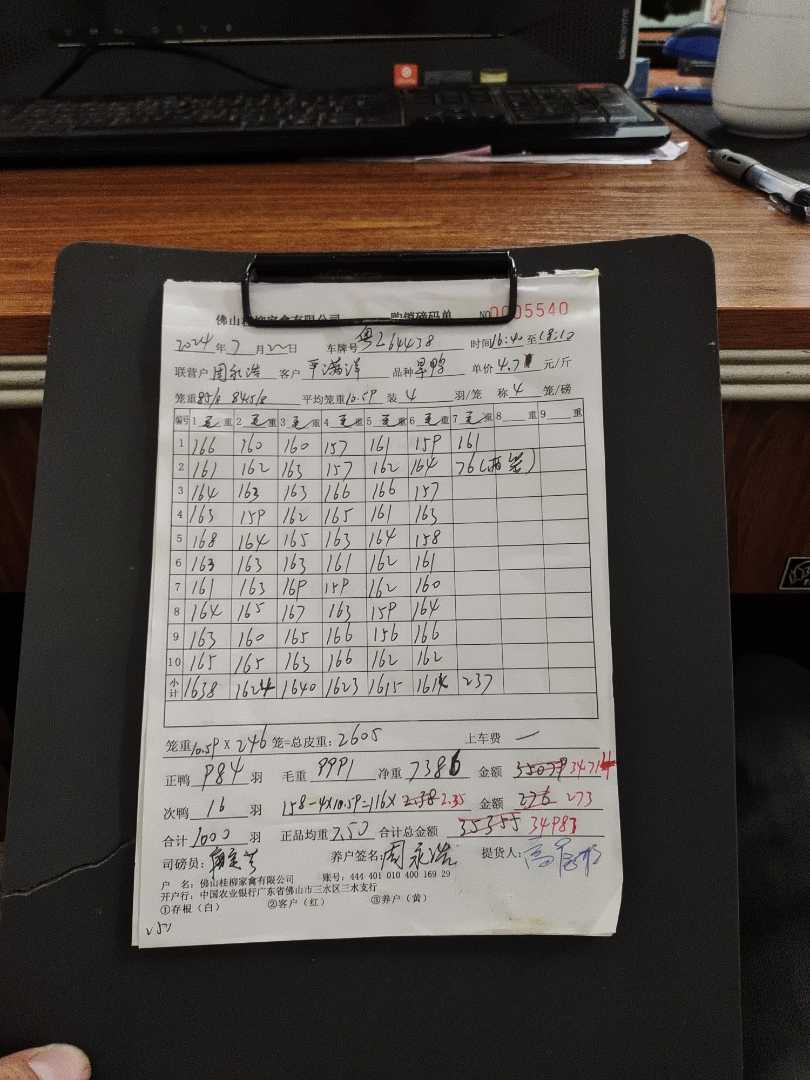 佛山桂柳家禽有限公司 购销磅码单 NO 0005540
2024年7月22日 车牌号 粤L64438 时间16:40至18:10
联营户 周永浩 客户 客 品种 旱鸭 单价 4.7 元/斤
笼重 85/8 84.5/8 平均笼重10.59 装 4 羽/笼 称 4 笼/磅
编号 1 毛 重 2 毛 重 3 毛 重 4 毛 重 5 毛 重 6 毛 重 7 毛 重 8 重 9 重
1 166 160 160 157 161 159 161
2 161 162 163 157 162 164 76(两笼)
3 164 163 163 166 166 157
4 163 159 162 165 161 163
5 168 164 165 163 164 158
6 163 163 163 161 162 161
7 161 163 169 159 162 160
8 164 165 167 163 159 164
9 163 160 165 166 156 166
10 165 165 163 166 162 162
小计 1638 1624 1640 1623 1615 1614 237
笼重10.59×246笼=总皮重:2605 上车费 一
正鸭 984 羽 毛重 9991 净重 7386 金额 35039 34714
次鸭 16 羽 158-4×10.59=116× 2.38 2.35 金额 276 273
合计 1000 羽 正品均重 7.50 合计总金额 35355 34983
司磅员: 养户签名: 周永浩 提货人:
户 名:佛山桂柳家禽有限公司 账号:444 401 010 400 169 29
开户行:中国农业银行广东省佛山市三水区三水支行
①存根(白) ②客户(红) ③养户(黄)